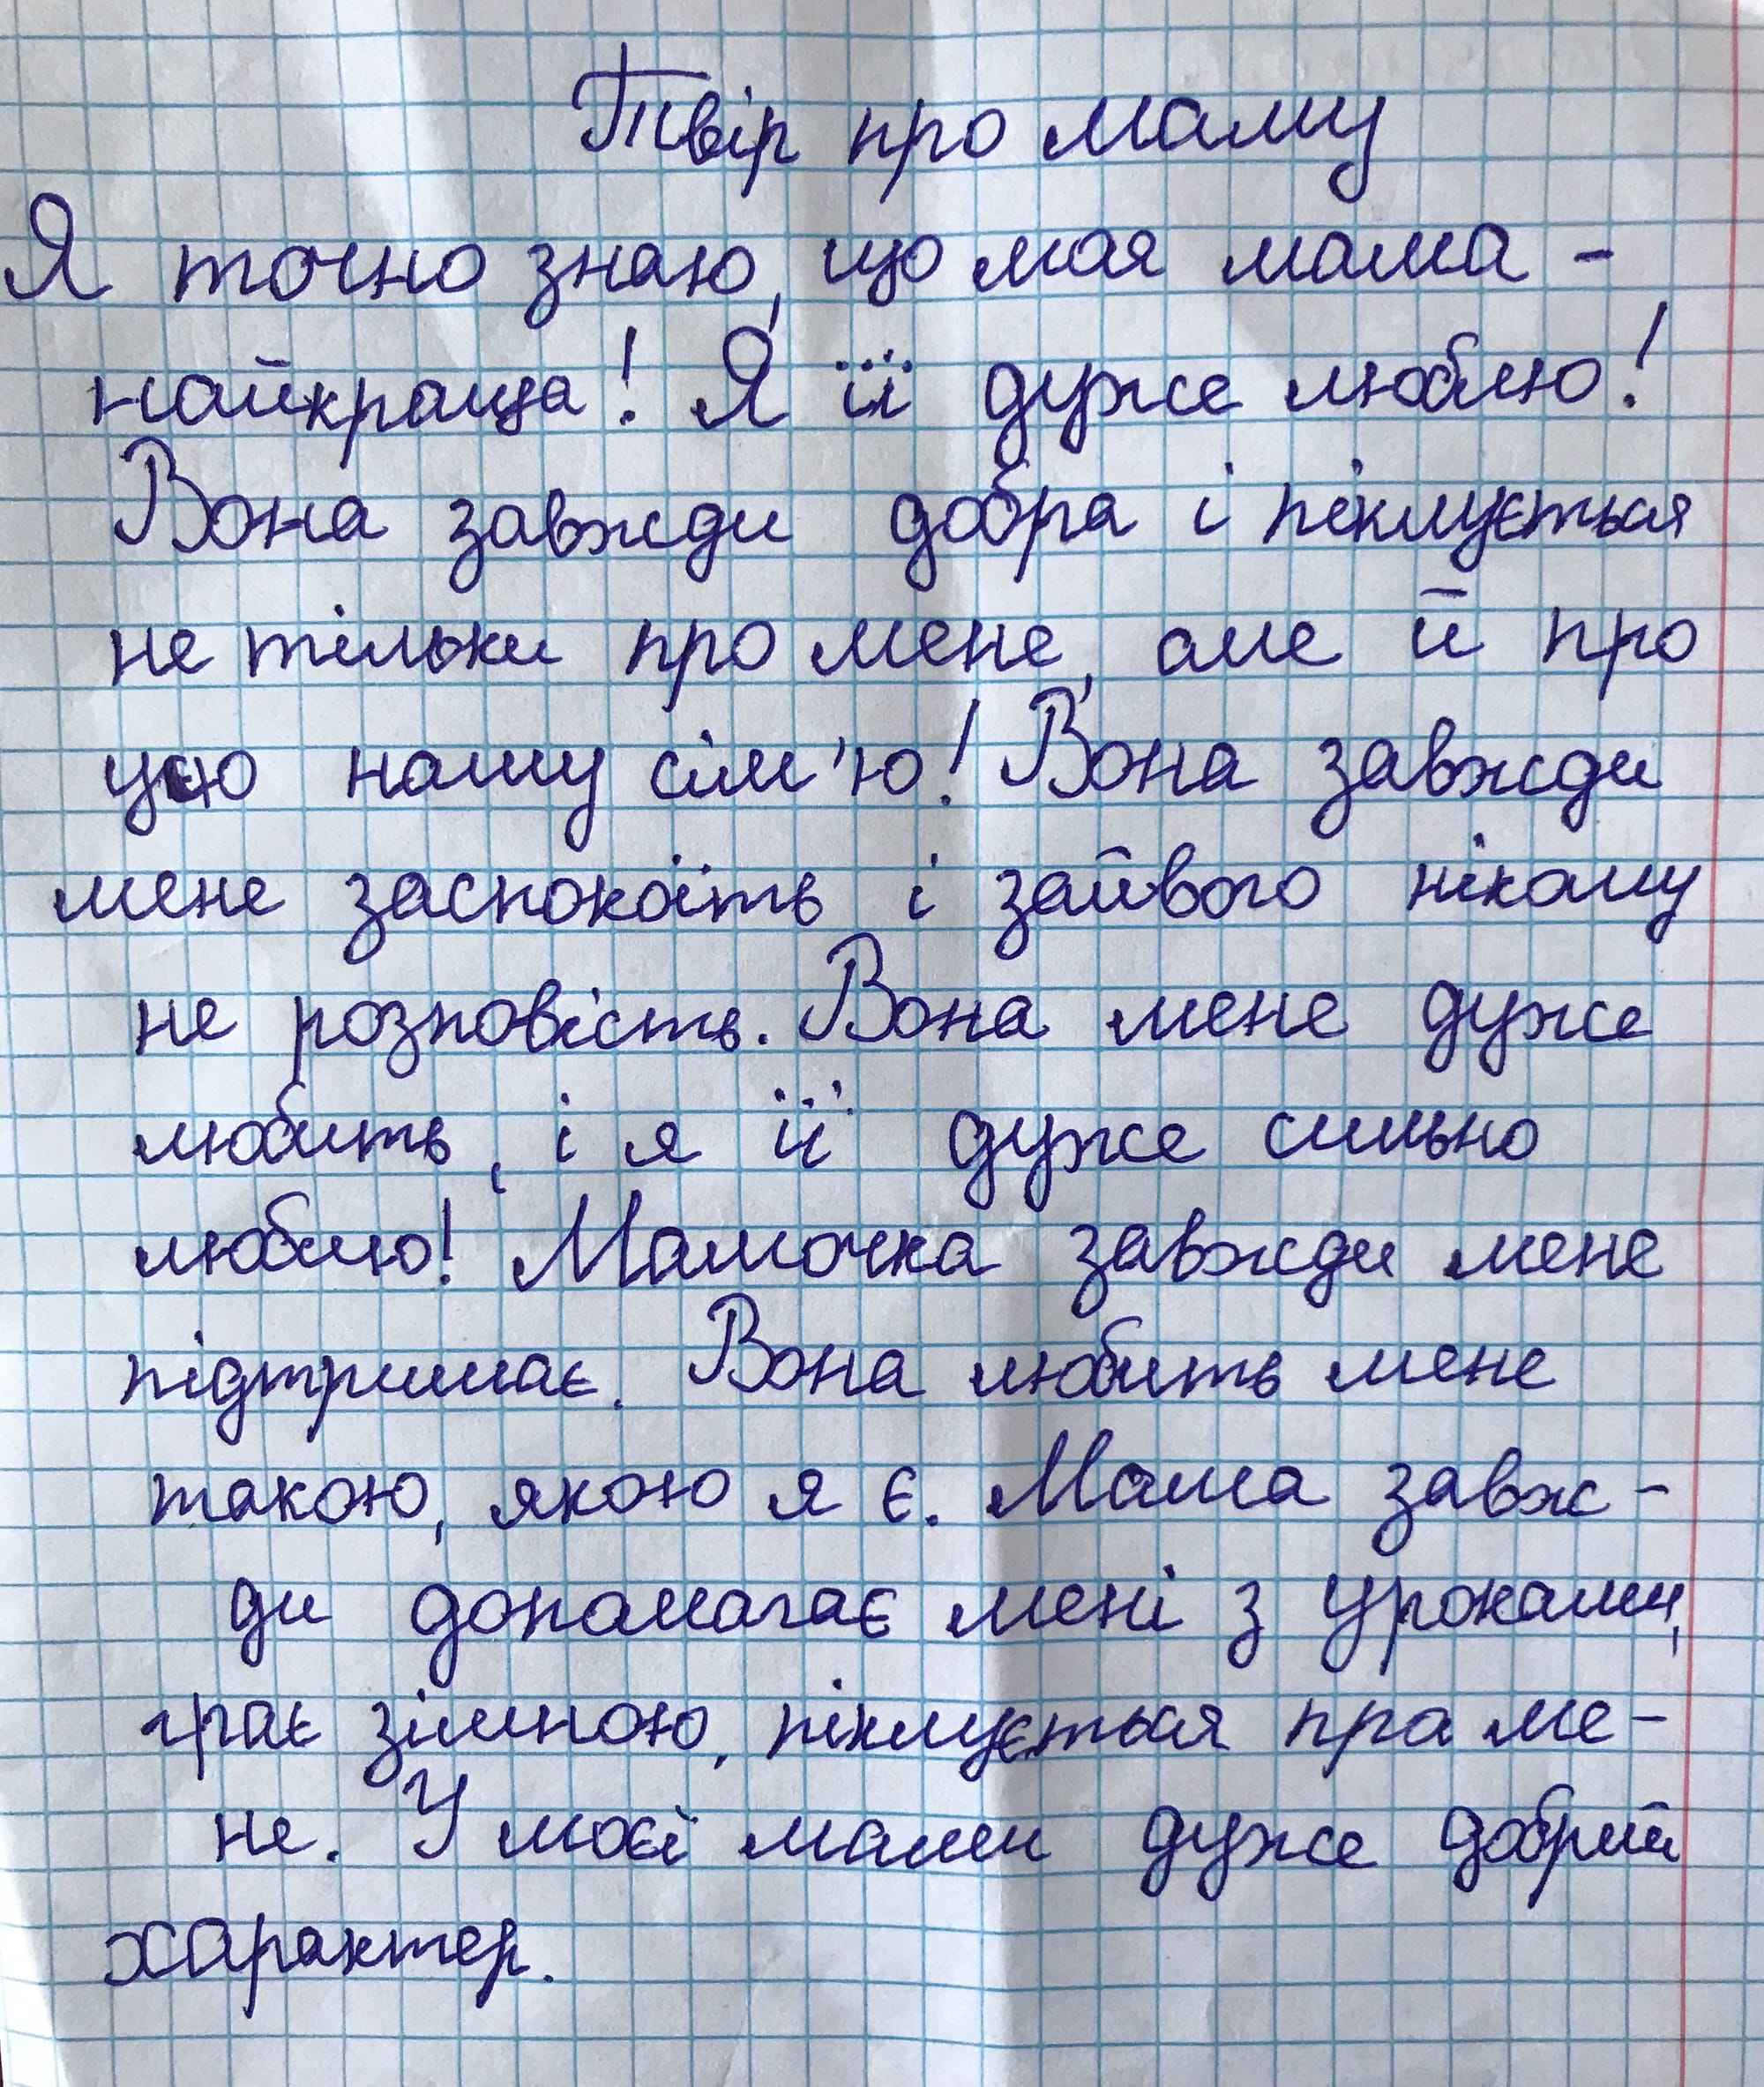 Твір про маму
Я точно знаю, що моя мама -
найкраща! Я її дуже люблю!
Вона завжди добра і піклується
не тільки про мене, але й про
усю нашу сім'ю! Вона завжди
мене заспокоїть і зайвого нікому
не розповість. Вона мене дуже
любить, і я її дуже сильно
люблю! Мамочка завжди мене
підтримає. Вона любить мене
такою, якою я є. Мама завж-
ди допомагає мені з уроками,
грає зімною, піклується про ме-
не. У моєї мами дуже добрий
характер.